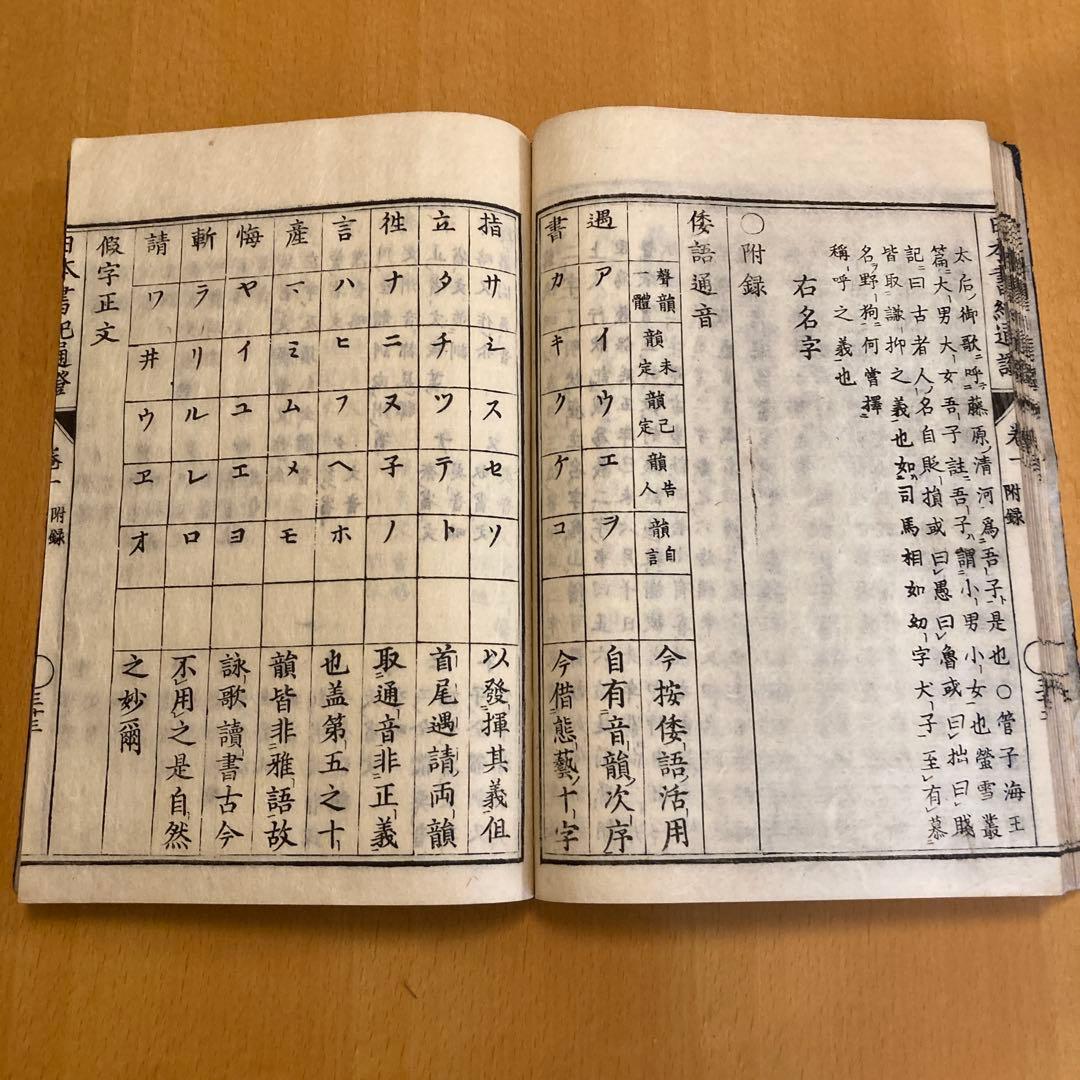 太后ノ御歌ニ呼テ藤原ノ清河ヲ爲吾子ト是也〇管子海王
篇ニ大男大女吾子註吾子ハ謂小男小女ヲ也螢雪叢
記ニ曰古者人ノ名自貶損或曰愚曰魯或曰拙曰賤
皆取謙抑之義ヲ也如司馬相如幼字犬子至有慕
名ヲ野狗ニ何嘗擇
稱呼之義也
右名字
〇附録
倭語通音
聲韻一體 韻未定 韻已定 韻告人 韻自言 今按倭語活用
遇 ア イ ウ エ ヲ 自有音韻次序
書 カ キ ク ケ コ 今借態藝ノ十字
指 サ シ ス セ ソ 以發揮其義但
立 タ チ ツ テ ト 首尾遇請両韻
徃 ナ ニ ヌ 子 ノ 取通音非正義
言 ハ ヒ フ ヘ ホ 也盖第五之十
産 マ ミ ム メ モ 韻皆非雅語故
悔 ヤ イ ユ エ ヨ 詠歌讀書古今
斬 ラ リ ル レ ロ 不用之是自然
請 ワ 井 ウ ヱ オ 之妙爾
假字正文
日本書紀通證
卷一 附録
日本書紀通證 卷一 附録
三十三